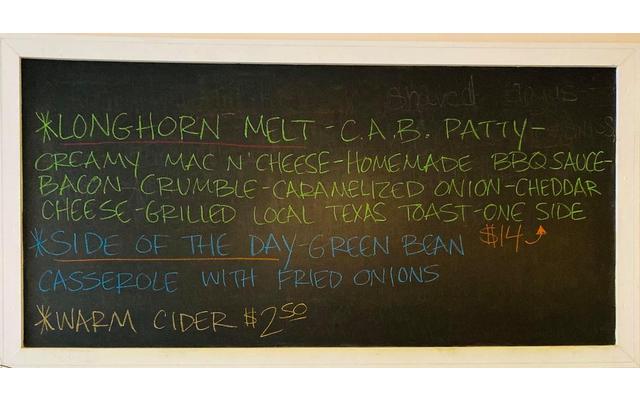 shaved
*LONGHORN MELT - C.A.B. PATTY-
CREAMY MAC N' CHEESE-HOMEMADE BBQ SAUCE-
BACON CRUMBLE-CARAMELIZED ONION-CHEDDAR
CHEESE-GRILLED LOCAL TEXAS TOAST-ONE SIDE
$14
*SIDE OF THE DAY-GREEN BEAN
CASSEROLE WITH FRIED ONIONS
*WARM CIDER $2.50